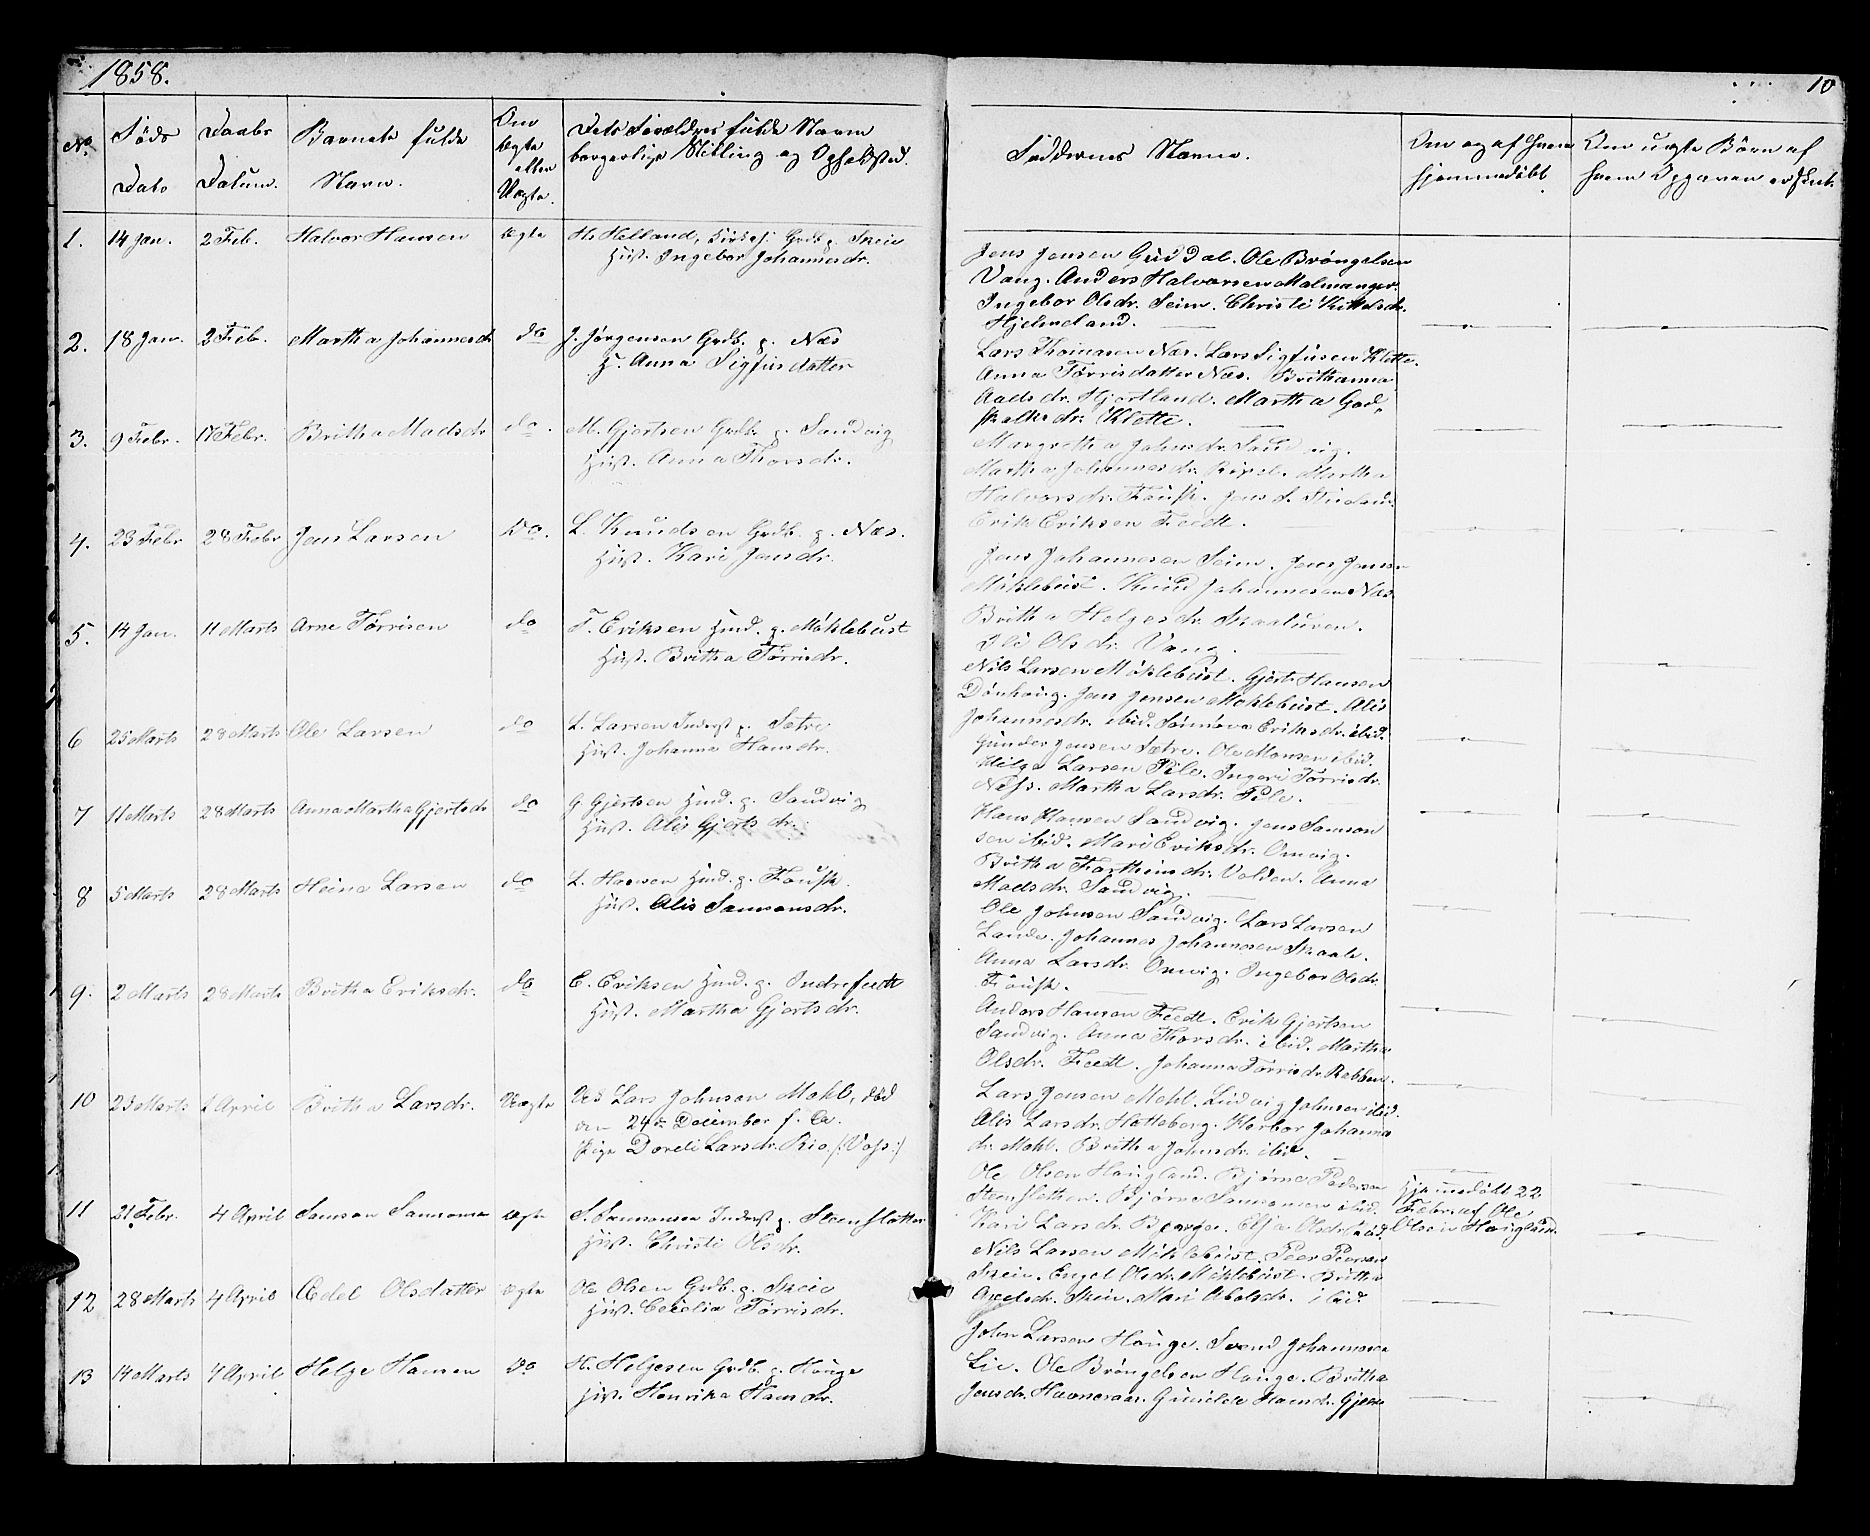 1858.
10
No
Føds Dato
Daabs Datum.
Barnets fulde Navn.
Om Ægte eller Uægte.
Dets Forældres fulde Navn borgerlige Stilling og Opholdsted.
Faddernes Navne.
Om og af hvem hjemmedøbt
Om uægte Børn af hvem Opgaven er skeet.
1. 14 Jan. 2 Feb. Halvor Hansen Ægte H. Helland, Kirkesj. Grdb. p. Skeie
Hust. Ingebor Johannesdr.
Jens Jensen Guddal. Ole Brøngelsen
Vang. Anders Halvorsen Malmanger.
Ingebor Olsdr. Seim. Christi Kittelsdr.
Hjelmeland.
2. 18 Jan. 2 Feb. Martha Johannesdr do J. Jørgensen Grdb. p. Næs
H. Anna Sigfusdatter
Lars Thomasen Næs. Lars Sigfusen Klette.
Anna Tørrisdatter Næs. Brithanna
Aadsdr. Hjortland. Martha God-
skalksdr. Klette.
3. 9 Febr. 17 Febr. Britha Madsdr do. M. Gjertsen Grdb. p. Sandvig
Hust. Anna Thorsdr.
Margretha Johnsdr. Sandvig.
Martha Johannesdr. Ripel. Martha
Halvorsdr. Fousk. Jens
Erik Eriksen Feedt.
4. 23 Febr 28 Febr Jens Larsen do. L. Knudsen Grdb. p. Næs.
Hust. Kari Jensdr.
Jens Johannesen Seim. Jens Jensen
Møklebust. Knud Johannesen Næs.
Britha Helgesdr. Skaaluren.
Ili Olsdr. Vang.
5. 14 Jan. 11 Marts Arne Tørrisen do T. Eriksen Hmd. p. Møklebust
Hust. Britha Tørrisdr.
Nils Larsen Møklebust. Gjert Hansen
Dønhvig. Jens Jensen Møklebust. Alis
Johannesdr. ibid. Sønneva Eriksdr. ibid.
6 25 Marts 28 Marts Ole Larsen do L. Larsen Inderst p. Sætre
Hust. Johanna Hansdr.
Gunder Jensen Sætre. Ole Monsen ibid.
Helge Larsen Tele. Ingeri Tørrisdr.
Næss. Martha Larsdr. Tele.
7 11 Marts 28 Marts Anna Martha Gjertsdr do G. Gjertsen Hmd. p. Sandvig
Hust. Alis Gjertsdr.
Hans Hansen Sandvig. Jens Samson
sen ibid. Mari Eriksdr. Omvig.
Britha Torsteinsdr. Valden. Anna
Madsdr. Sandvig.
8 5 Marts 28 Marts Heine Larsen do L. Hansen Hmd. p. Fousk.
Hust. Alis Samsonsdr.
Ole Johnsen Sandvig. Lars Larsen
Lande. Johannes Johannesen Skaale.
Anna Larsdr. Omvig. Ingebor Olsdr.
Fousk.
9. 2 Marts 28 Marts Britha Eriksdr. do E. Eriksen Hmd. p. Indrefeedt
Hust. Martha Gjertsdr.
Anders Hansen Feedt. Erik Gjertsen
Sandvig. Anna Thorsdr. ibid. Martha
Olsdr. Feedt. Johanna Tørrisdr Rabben.
10 23 Marts 2 April Britha Larsdr. Uægte Ved Lars Johnson Mehl, død
den 24de December f. A.
Pige Dordei Larsdr. Rio /:Voss:/
Lars Jensen Mehl. Ludvig Johnsen ibid.
Alis Larsdr. Hatteberg. Herbor Johanna
dr. Mehl. Britha Johnsdr. ibid.
11 21 Febr. 4 April Samson Samsonsen Ægte S. Samsonsen Inderst p. Steensletten
Hust. Christi Olsdr.
Ole Olsen Haugland. Bjørne Pedersen
Steensletten. Bjørne Samsonsen ibid.
Kari Larsdr. Berge. Elsa Olsdr. ibid.
Hjemmedøbt 22
Febr. af Ole
Olsen Haugland.
12 28 Marts 4 April Edel Olsdatter Ægte Ole Olsen Grdb. p. Skeie
Hust. Cecelia Tørrisdr.
Nils Larsen Møklebust. Peer Peersen
Skeie. Engel Olsdr. Møklebust. Britha
Axelsdr. Skeie. Mari Abelsdr. ibid.
13 14 Marts 4 April Helge Hansen do H. Helgesen Grdb. p. Hauge
Hust. Henrika Hansdr.
John Larsen Hauge. Svend Johannesen
Lie. Ole Brøngelsen Hauge. Britha
Jensdr. Havneraas. Gunilde Hansdr. Gjerde